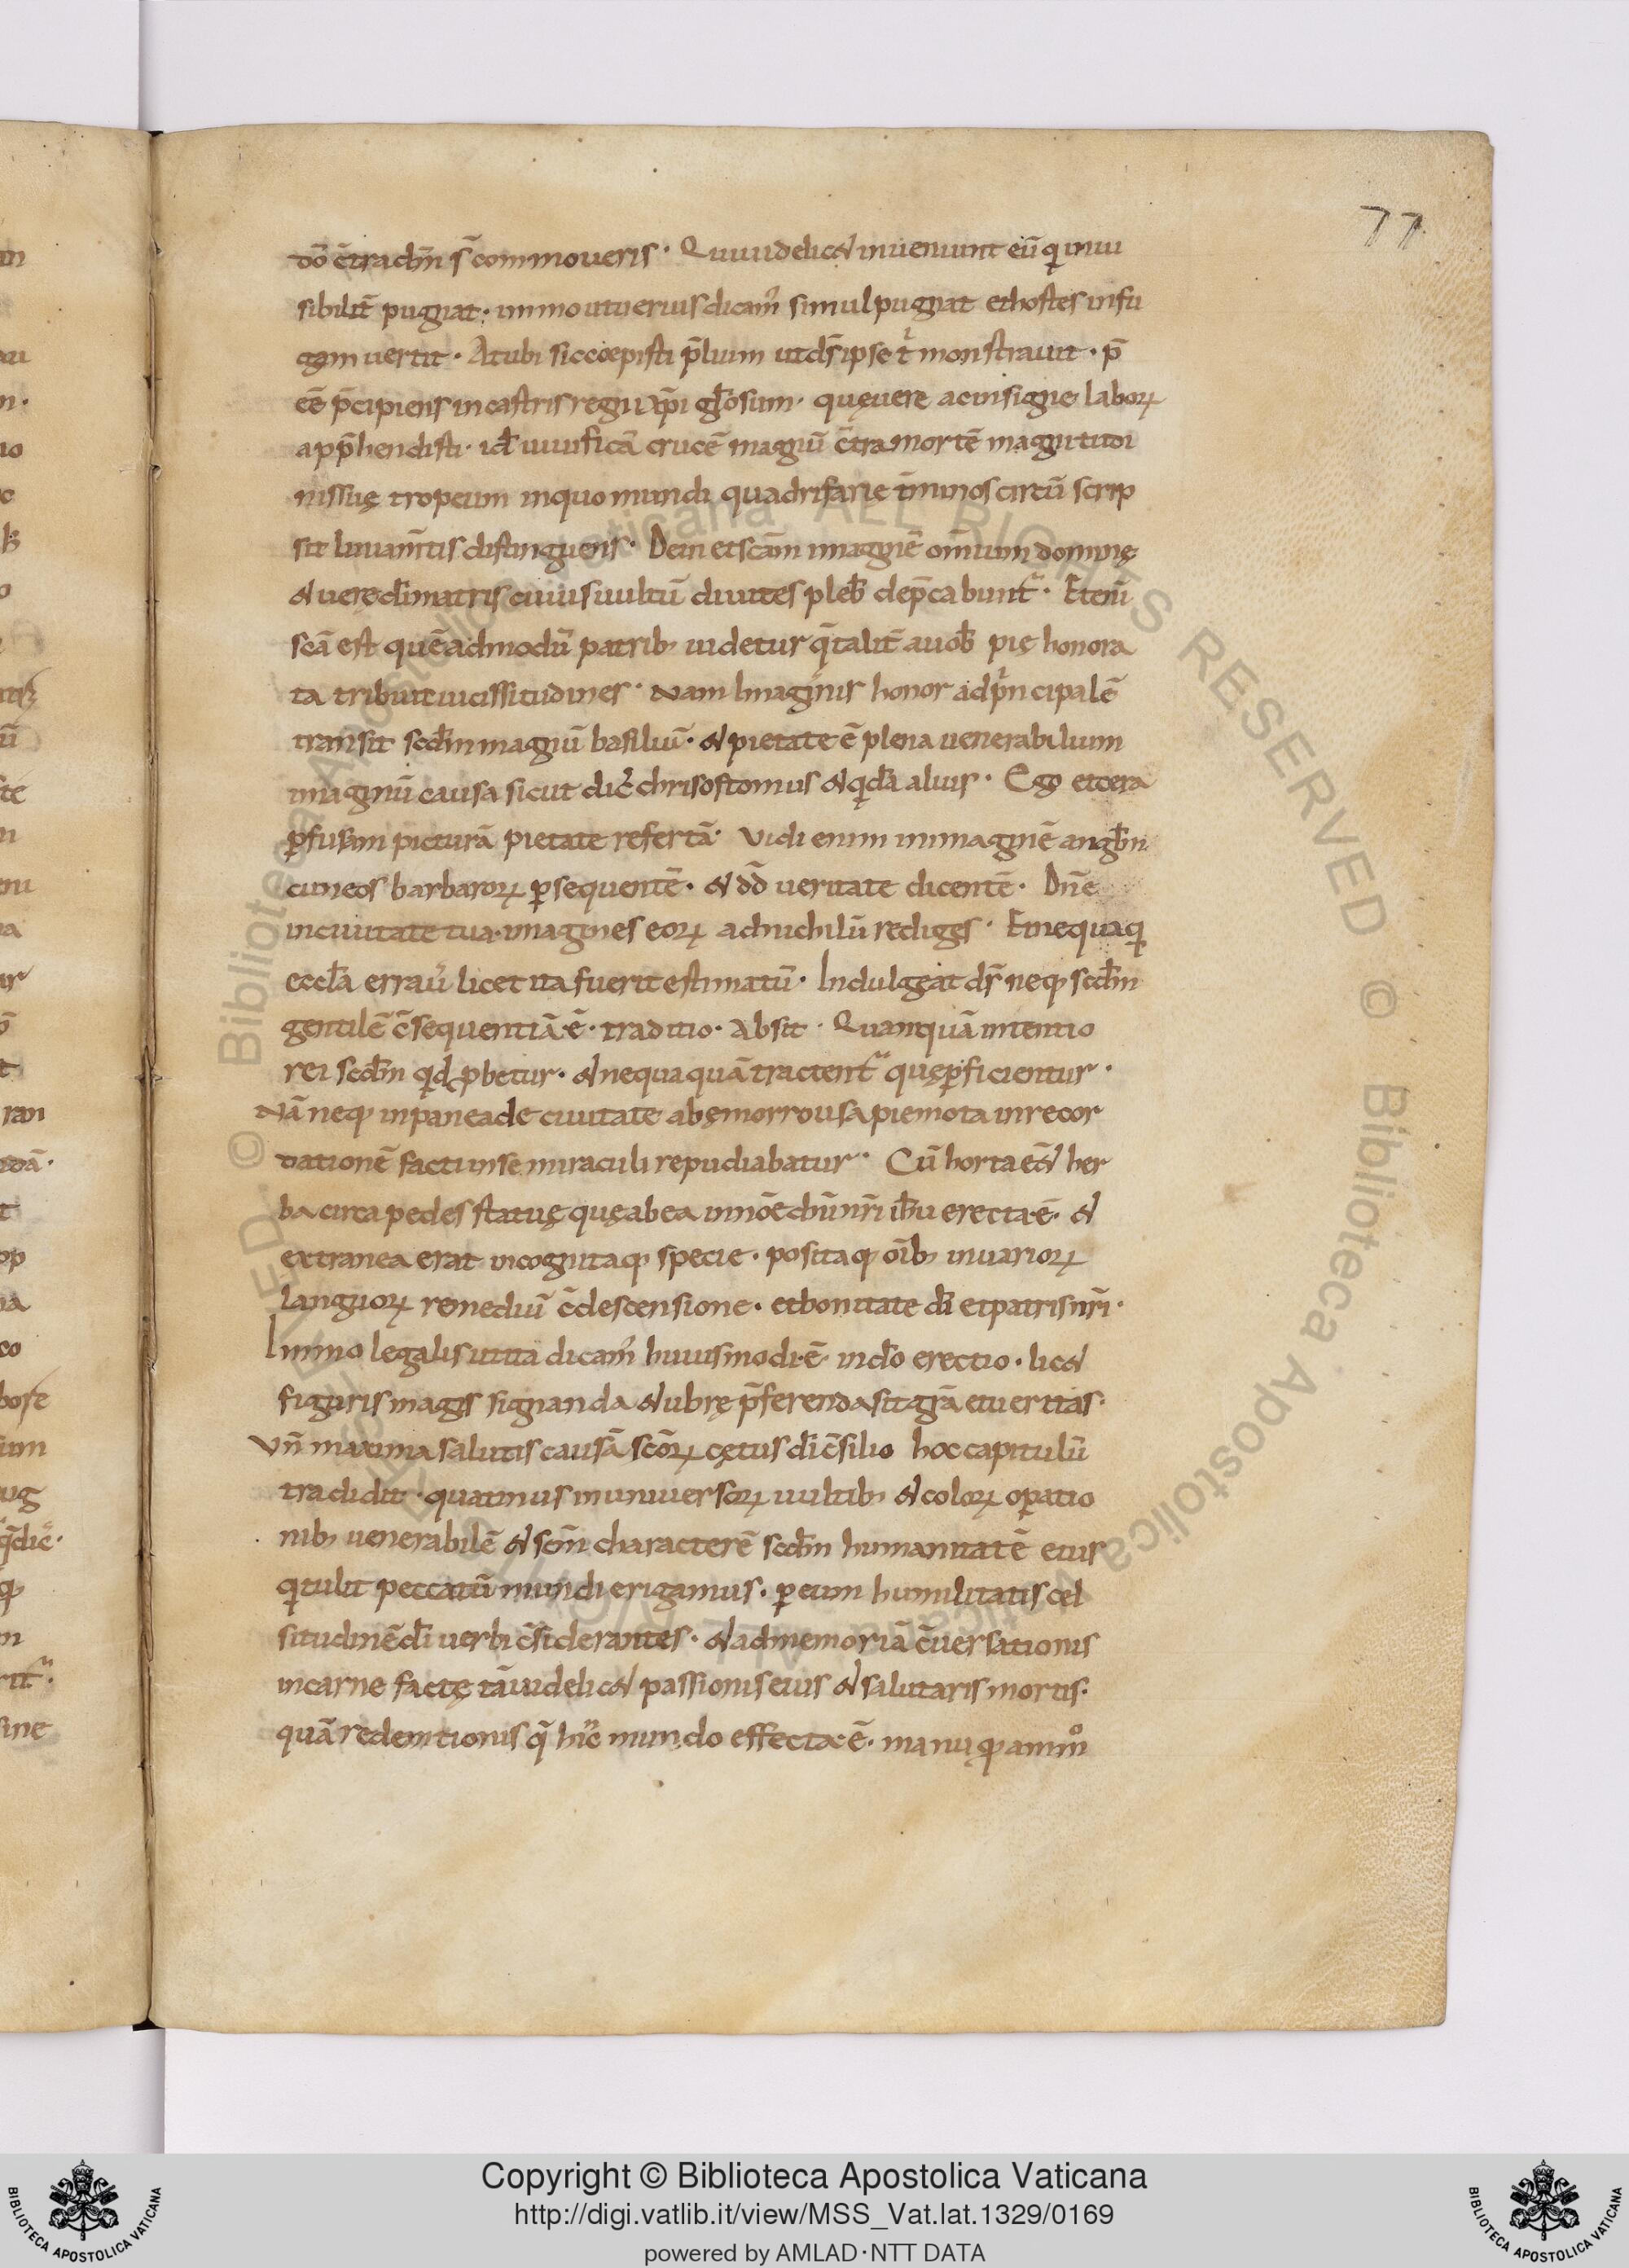 77
dō c̄tra dn̄m s̄ commoueris · Qui uidelic& inueniunt eū q inui
sibilit̄ pugnat · immo ut uerius dicam᷒ simul pugnat et hostes in fu
gam uertit · At ubi sic coepisti p̄lium ut ds̄ ipse t᷒ monstrauit · p̄
cē p̄cipiens in castris regni xp̄i gl̄osum · quę uere ac insigne laborꝝ
app̄hendisti · id ̄ uiuificā crucē magnū c̄tra mortē magnitudi
nis suę tropeum in quo mundi quadrifarię t̄minos circū scrip
sit liniam̄tis distinguens · Dein et sc̄am imaginē om̄ium dominę
& uere dī matris cuius uultū diuites pleb̄ dep̄cabunt᷒ · Etenī
sc̄a est quēadmodū patrib; uidetur q̄ talit̄ a uob̄ pię honora
ta tribuit uicissitudines · Nam Imaginis honor ad p᷒ncipalē
transit scd̄m magnū basiliū · & pietate ē plena uenerabilium
imaginū causa sicut dic᷒ chrisostomus & q̄dā aliis · Ego et cera
ꝑfusam picturā pietate refertā · Vidi enim in imaginē angl̄m
cuneos barbarorꝝ ꝑsequentē · & dd̄ ueritate dicentē · Dn̄e
in ciuitate tua · imagines eorꝝ ad nichilū rediges · E nequaq
eccl̄a errau᷒ licet ita fuerit estimatū · Indulgeat ds̄ neq; scd̄m
gentilē c̄sequentiā · ē · traditio · Absit · Quanquā intentio
rei scd̄m qd ꝓbetur · & nequaquā tractent᷒ quę ꝑficientur ·
Nā neq; in paneade ciuitate ab ęmorrousa pie mota in recor
dationē facti in se miraculi repudiabatur · Cū horta ēē& her
ba circa pedes statuę quę ab ea in nōe dn̄i nr̄i ih̄u erecta · ē · &
extranea erat incognitaq; specie · positaq; oīb; in uariorꝝ
languorꝝ remediū c̄descensione · et bonitate dī et patris nr̄i ·
Immo legalis ut ita dicam᷒ huiusmodi · ē · in do erectio · lic&
figuris magis signanda & ubrę p̄ferenda sit gr̄a et ueritas ·
Vn̄ maxima salutis causā sc̄orꝝ cętus dī c̄silio hoc capitulū
tradidit · quatinus in uniuersorꝝ uultib; & colorꝝ oꝑatio
nib; uenerabilē & sc̄m characterē scd̄m humanitatē eius
q tulit peccatū mundi erigamus · ꝑ eum humilitatis cel
situdinē dī uerbi c̄siderantes · & ad memoriā c̄uersationis
in carne factę tā uidelic& passionis eius & salutaris mortis ·
quā redemtionis q̄ hinc mundo effecta · ē · manuq; animo
Copyright © Biblioteca Apostolica Vaticana
http://digi.vatlib.it/view/MSS_Vat.lat.1329/0169
powered by AMLAD·NTT DATA